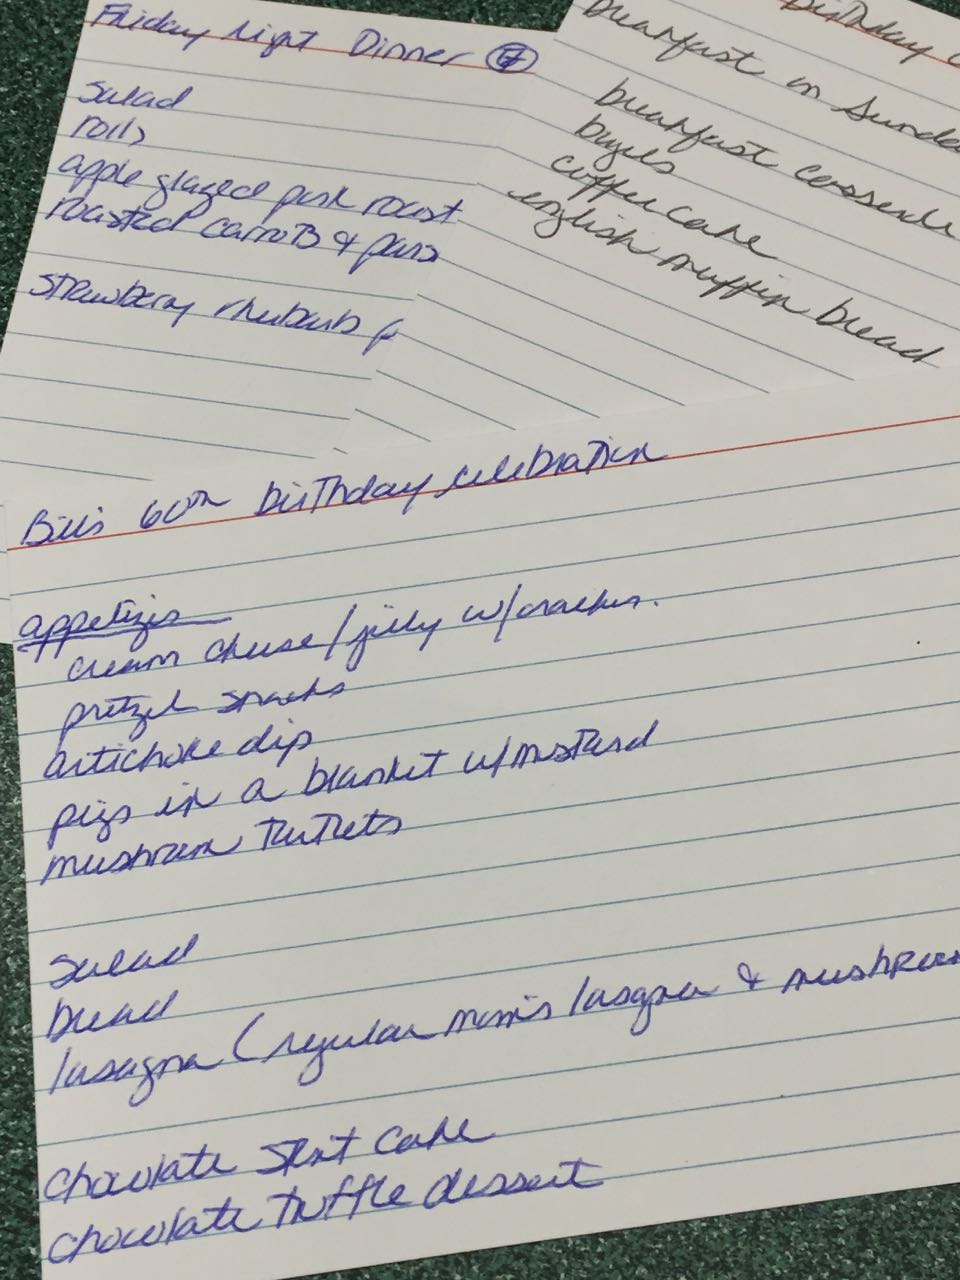 Friday Night Dinner
salad
rolls
apple glazed pork roast
roasted carrots & peas
strawberry rhubarb
birthday
breakfast on Sunday
breakfast casserole
bagels
coffee cake
english muffin bread
Bill's 60th birthday celebration
appetizers
cream cheese/jelly w/crackers.
pretzel snacks
artichoke dip
pigs in a blanket w/mustard
mushroom tartlets
salad
bread
lasagna (regular mom's lasagna & mushroom
chocolate stout cake
chocolate truffle dessert